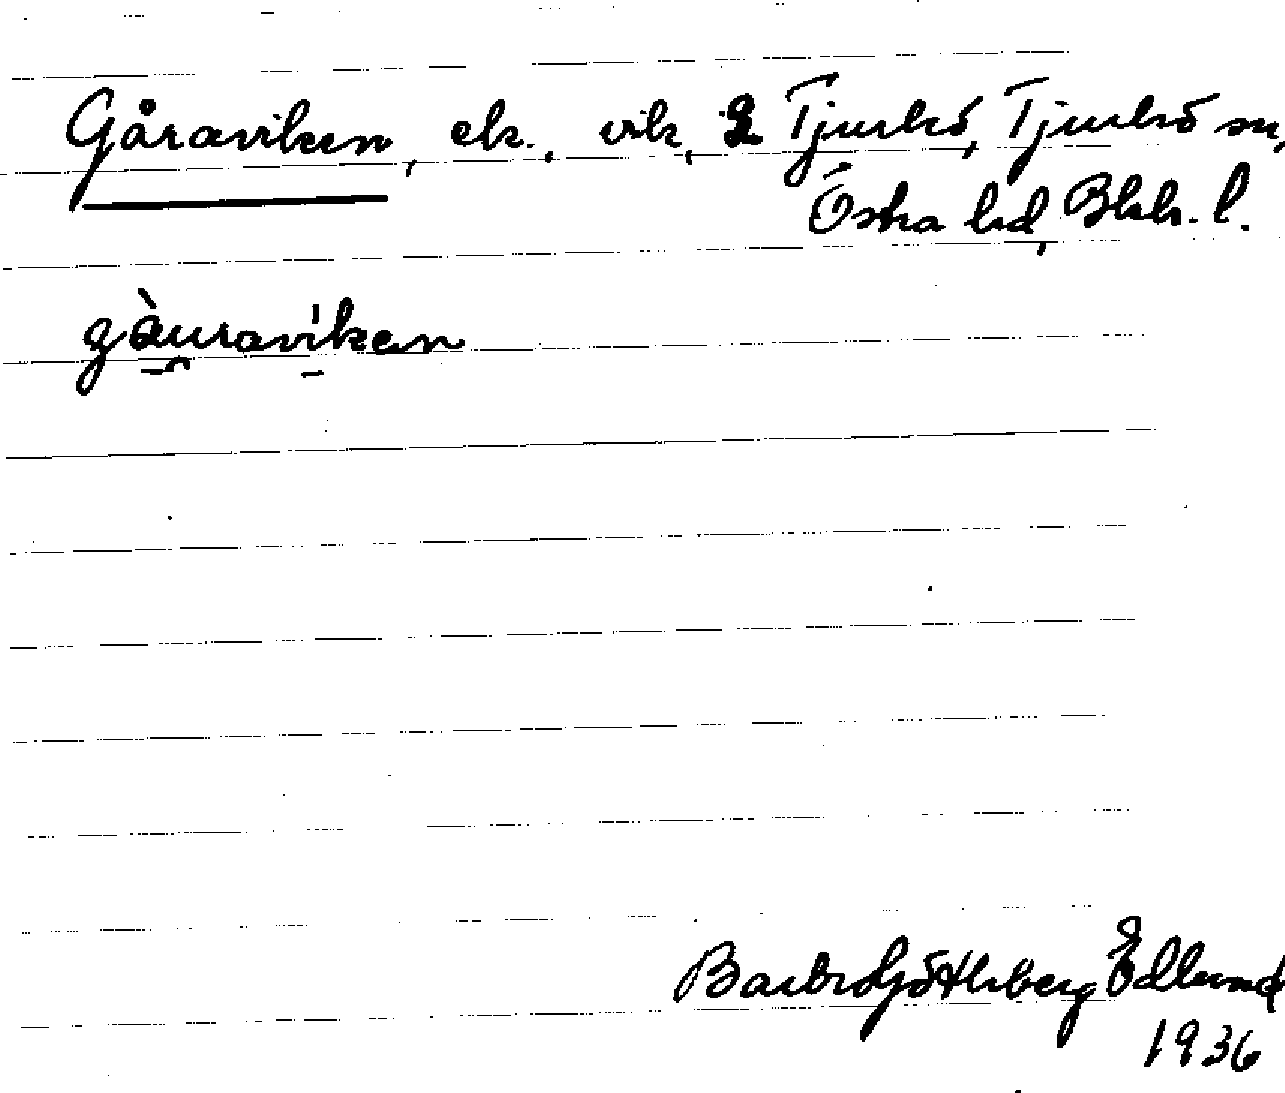 Gåraviken, ek., vik, 2 Tjurkö, Tjurkö sn,
Östra hd, Blek. l.
gàuravikan
Barbro Göthberg Edlund
1936